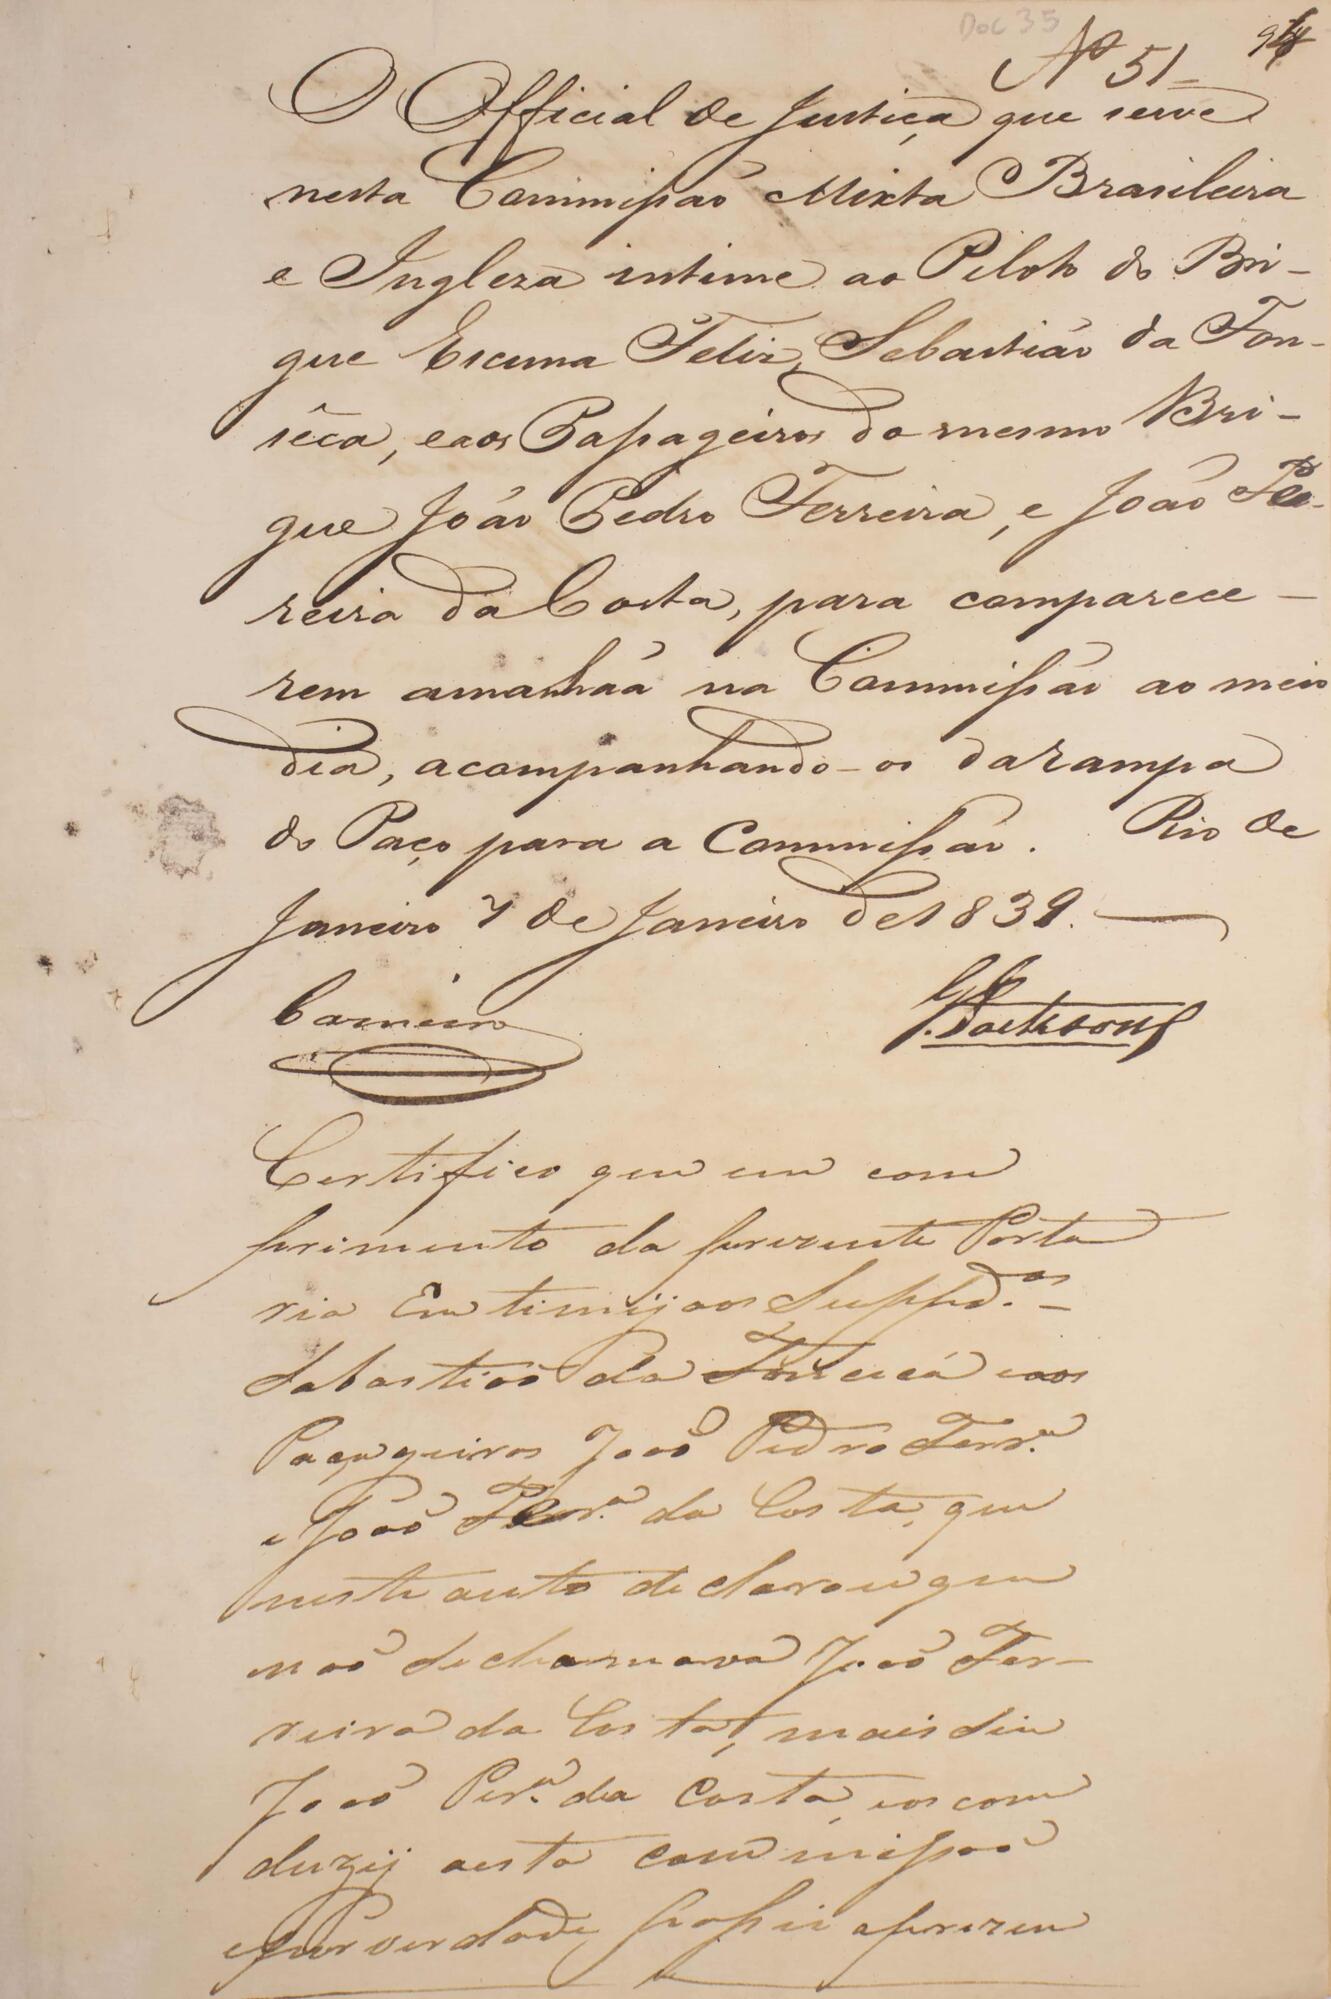 Doc 35
Nº 51
94
O Official de Justiça que serve
nesta Commissaõ Mixta Brasileira
e Ingleza intime ao Piloto do Bri-
gue Escuna Feliz, Sebastiaõ da Fon-
sêca, eaos Passageiros do mesmo Bri-
gue João Pedro Ferreira, e João
reira da Costa, para comparece-
rem amanhãa na Commissão ao meio
dia, acompanhando-os da rampa
do Paço para a Commissão. Rio de
Janeiro 7 de Janeiro de 1839.
Carneiro
Jackson
Certifico que em com
primento da prezente Porta
ria Entimij aos Suppd.os
Sabastiaõ da Fonceca eaos
Paçageiros Joaõ Pedro Ferr.a
e Joaõ da Costa, que
neste auto declarou que
naõ se chamava Joaõ Fer-
reira da Costa, mais sim
Joaõ Per.a da Costa, eos com
duzij aesta commissaõ
epor verdade, passei aprezen